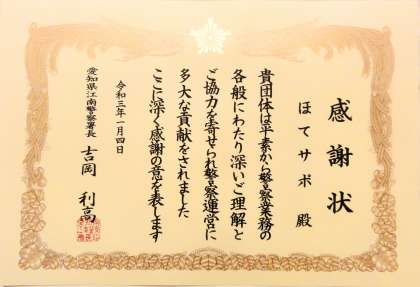 感謝状
ほてサポ 殿
貴団体は平素から警察業務の
各般にわたり深いご理解と
ご協力を寄せられ警察運営に
多大な貢献をされました
ここに深く感謝の意を表します
令和三年一月四日
愛知県江南警察署長 吉岡 利高